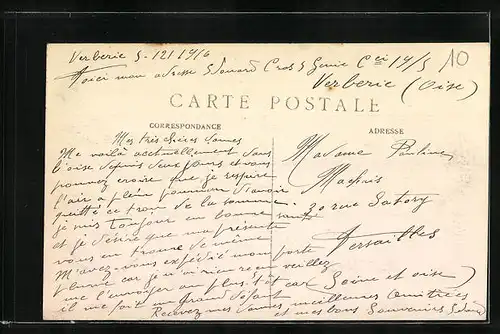 Verberie 5-12 1916
Voici mon adresse Edouard Cros 5 Genie Cie 19/5
Verberie (Oise)
10
CARTE POSTALE
CORRESPONDANCE
ADRESSE
Mes très chères dames
Me voilà actuellement dans
l'oise depuis deux jours et vous
pouvez croire que je respire
l'air a plein poumon d'avoir
quitté ce trou de la somme.
je suis toujour en bonne santé
et je désire que ma présente
vous en trouve de même
M'avez-vous expédié mon porte
plume car je n'ai rien reçu veuillez
me l'envoyer au plus tôt car
il me fait un grand défaut
Recevez mes dames meilleures amitiées
et mes bons Souvenirs Edouard
Madame Pauline
Machais
20 rue Satory
Versailles
(Seine et oise)